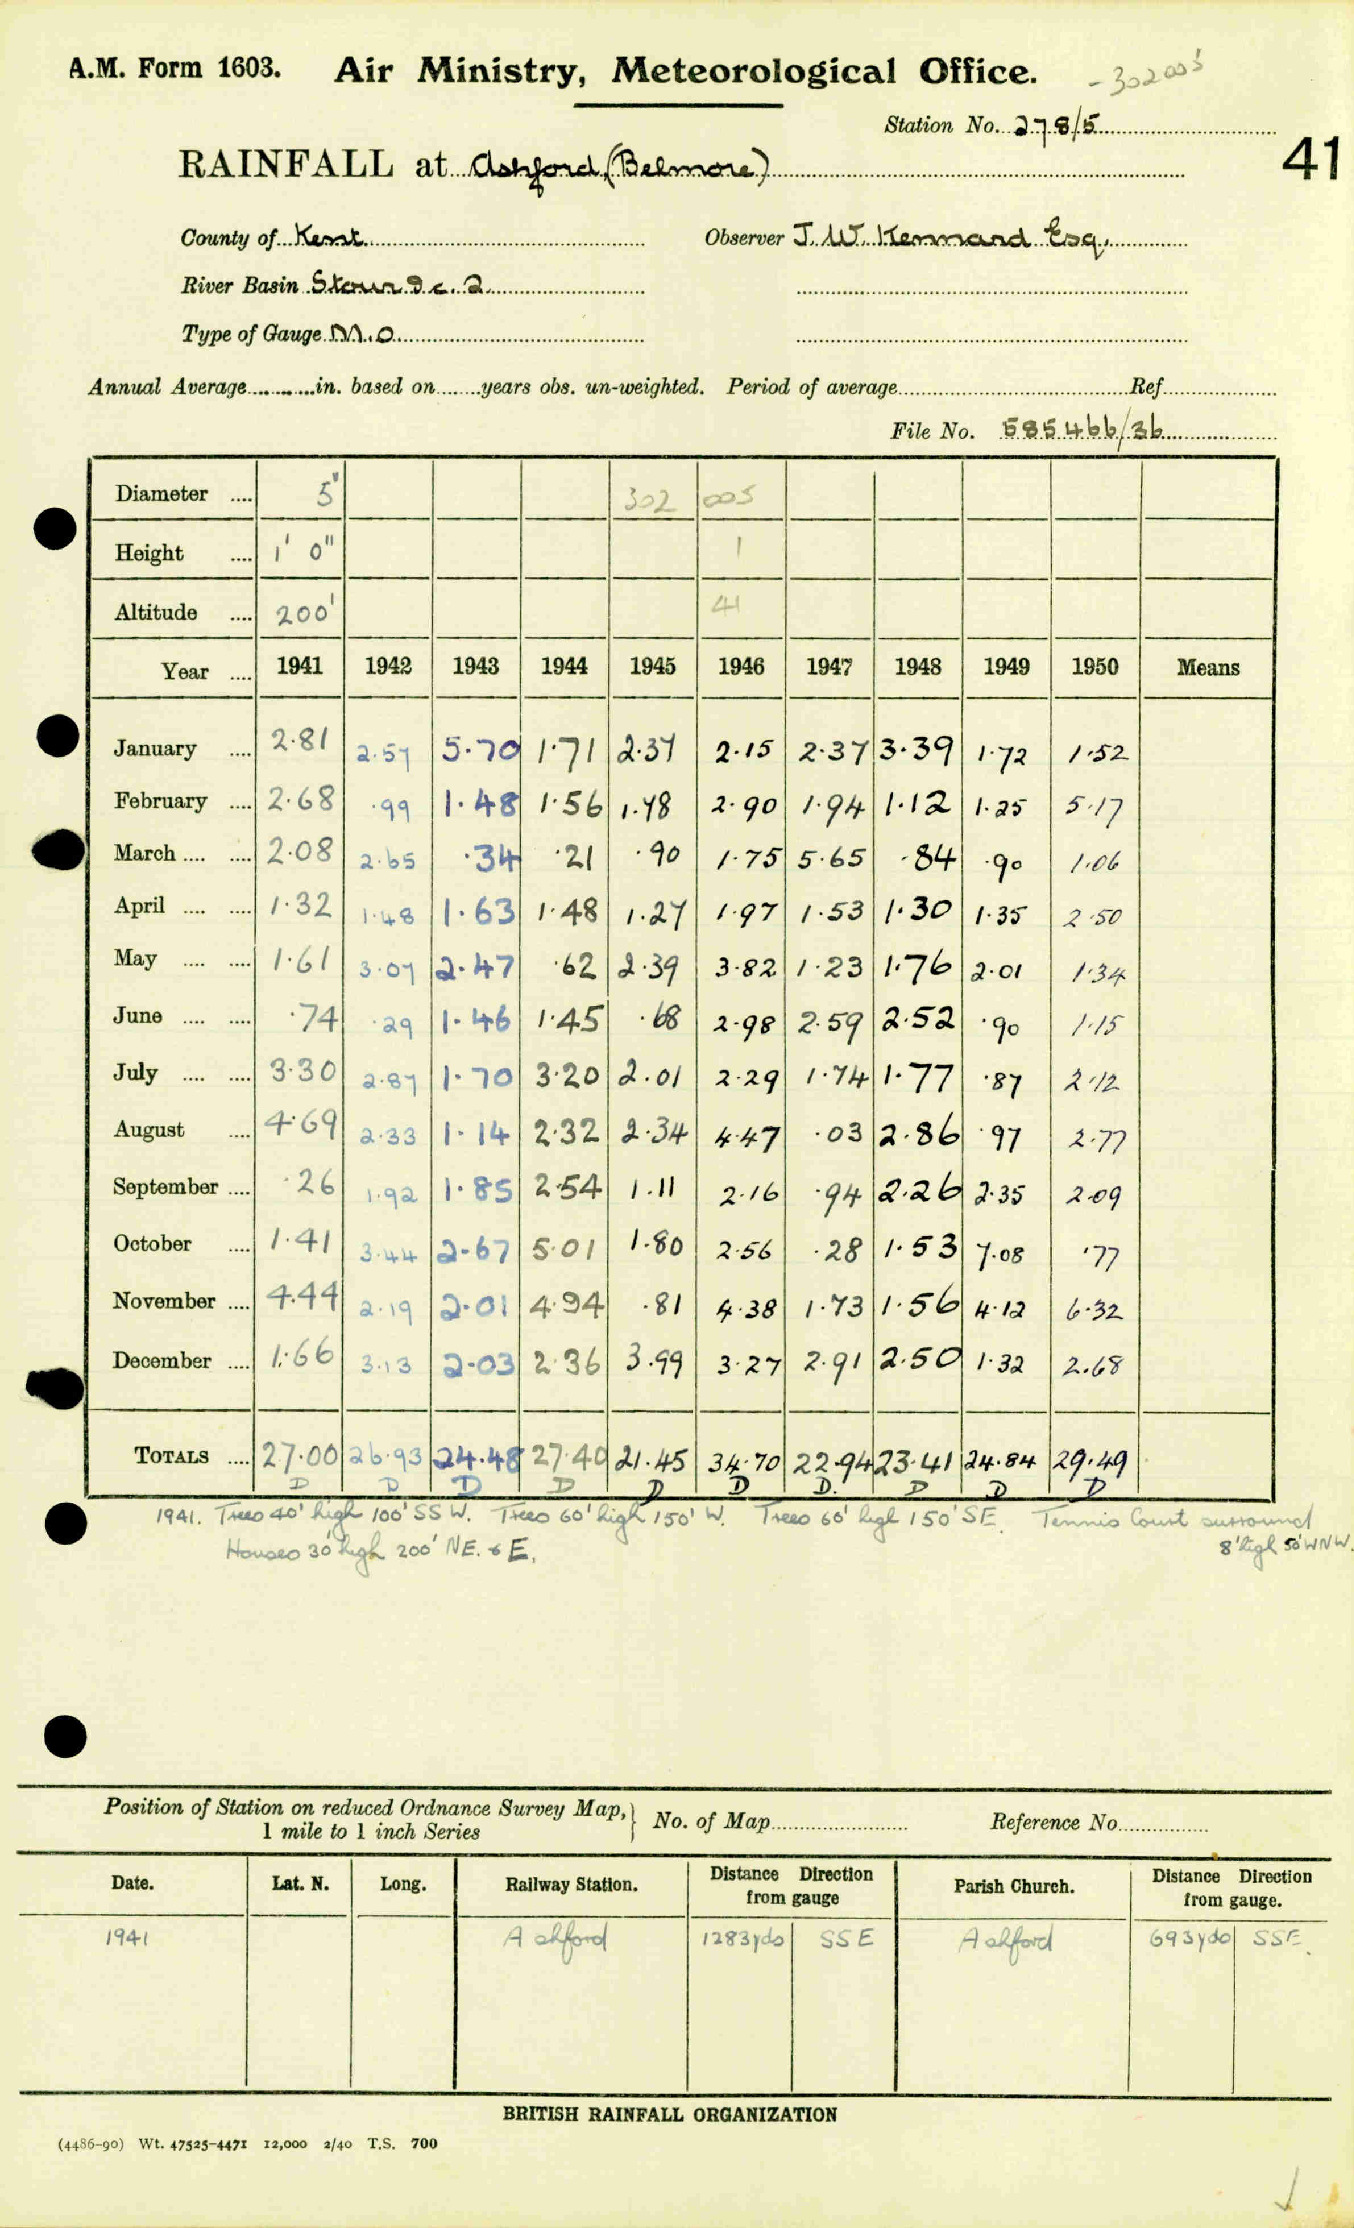 A.M. Form 1603. Air Ministry, Meteorological Office. - 302005
Station No. 278/5
41
RAINFALL at Ashford, (Belmore)
County of Kent Observer J. W. Kennard Esq.
River Basin Stour 9 c. 2
Type of Gauge M.O
Annual Average in. based on years obs. un-weighted. Period of average Ref
File No. 585466/36
Diameter .... 5" 302 005
Height .... 1' 0" 1
Altitude .... 200' 41
Year .... 1941 1942 1943 1944 1945 1946 1947 1948 1949 1950 Means
January .... 2.81 2.57 5.70 1.71 2.37 2.15 2.37 3.39 1.72 1.52
February .... 2.68 .99 1.48 1.56 1.78 2.90 1.94 1.12 1.25 5.17
March .... .... 2.08 2.65 .34 .21 .90 1.75 5.65 .84 .90 1.06
April .... .... 1.32 1.48 1.63 1.48 1.27 1.97 1.53 1.30 1.35 2.50
May .... .... 1.61 3.07 2.47 .62 2.39 3.82 1.23 1.76 2.01 1.34
June .... .... .74 .29 1.46 1.45 .68 2.98 2.59 2.52 .90 1.15
July .... .... 3.30 2.87 1.70 3.20 2.01 2.29 1.74 1.77 .87 2.12
August .... 4.69 2.33 1.14 2.32 2.34 4.47 .03 2.86 .97 2.77
September .... .26 1.92 1.85 2.54 1.11 2.16 .94 2.26 2.35 2.09
October .... 1.41 3.44 2.67 5.01 1.80 2.56 .28 1.53 7.08 .77
November .... 4.44 2.19 2.01 4.94 .81 4.38 1.73 1.56 4.12 6.32
December .... 1.66 3.13 2.03 2.36 3.99 3.27 2.91 2.50 1.32 2.68
TOTALS .... 27.00 26.93 24.48 27.40 21.45 34.70 22.94 23.41 24.84 29.49
D D D D D D D. D D D
1941. Trees 40' high 100' SSW. Trees 60' high 150' W. Trees 60' high 150' SE. Tennis Court surround
Houses 30' high 200' NE. & E. 8' high 50' WNW.
Position of Station on reduced Ordnance Survey Map, 1 mile to 1 inch Series } No. of Map Reference No.
Date. Lat. N. Long. Railway Station. Distance Direction from gauge Parish Church. Distance Direction from gauge.
1941 Ashford 1283yds SSE Ashford 693yds SSE.
BRITISH RAINFALL ORGANIZATION
(4486-90) Wt. 47525-4471 12,000 2/40 T.S. 700